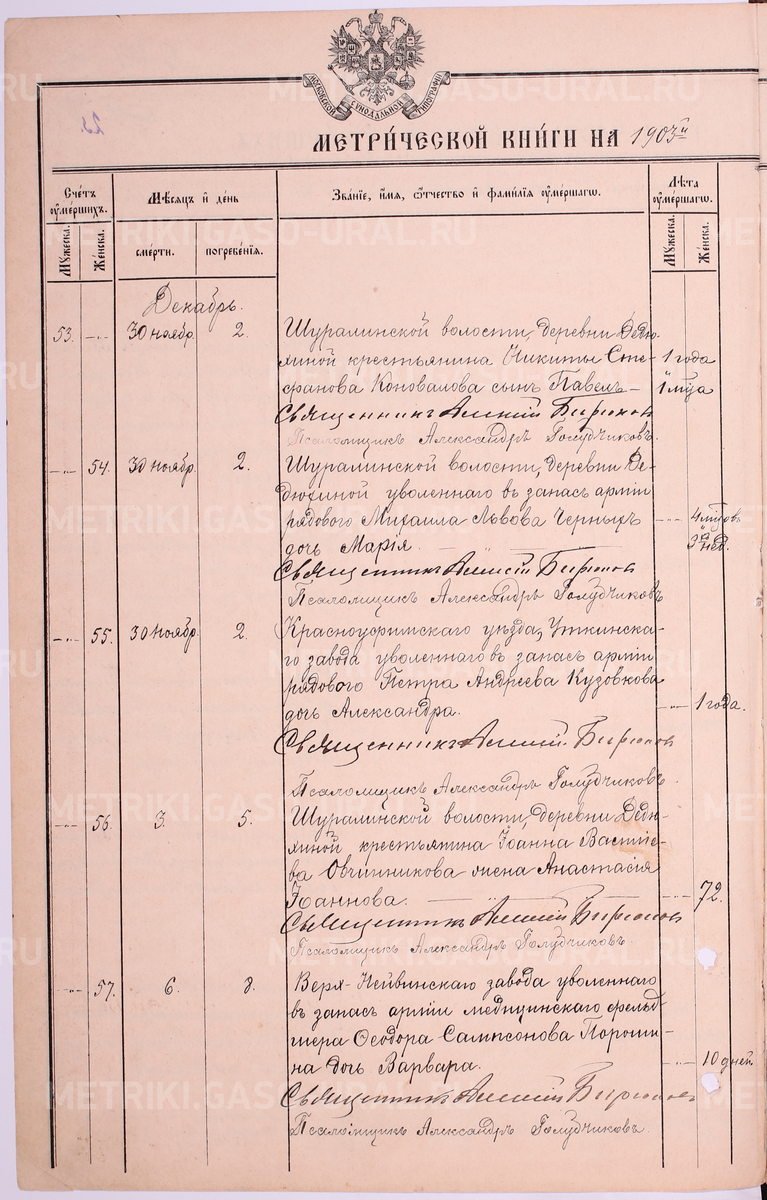 МОСКОВСКОЙ СѴНОДАЛЬНОЙ ТИПОГРАФІИ
23.
МЕТРИ́ЧЕСКОЙ КНИ́ГИ НА 1903й
Сче́тъ ᲂу҆ме́ршихъ.
Мꙋ́жеска.
Же́нска.
Мѣ́сѧцъ и҆ де́нь
сме́рти.
погребе́нїѧ.
Зва́нїе, и҆́мѧ, ѻ҆́тчество и҆ фами́лїѧ ᲂу҆ме́ршагѡ.
Лѣ́та ᲂу҆ме́ршагѡ.
Мꙋ́жеска.
Же́нска.
Декабрь.
53. -..- 30 ноябр. 2. Шуралинской волости, деревни Дедю-
хиной крестьянина Никиты Сте- 1 года
фанова Коновалова сынъ Павелъ — 1 мѣца
Священникъ Алексій Бирюков
Псаломщикъ Александръ Голубчиковъ.
-..- 54. 30 ноябр. 2. Шуралинской волости, деревни Де-
дюхиной уволеннаго въ запасъ арміи
рядового Михаила Львова Черныхъ -..- 4 мѣцовъ
дочь Марія. 3 нед.
Священник Алексій Бирюков
Псаломщикъ Александръ Голубчиковъ
-..- 55. 30 ноябр. 2. Красноуфимскаго уѣзда, Уткинска-
го завода уволеннаго въ запасъ арміи
рядового Петра Андреева Кузовкова
дочь Александра. -..- 1 года.
Священникъ Алексій Бирюков
Псаломщикъ Александръ Голубчиковъ.
-..- 56. 3. 5. Шуралинской волости, деревни Дедю-
хиной крестьянина Іоанна Василіе-
ва Овчинникова жена Анастасія
Іоаннова. -..- 72.
Священник Алексій Бирюков
Псаломщикъ Александръ Голубчиковъ.
-..- 57. 6. 8. Верх-Нейвинскаго завода уволеннаго
въ запасъ арміи медицинскаго фельд-
шера Ѳеодора Сампсонова Пороши-
на дочь Варвара. -..- 10 дней.
Священник Алексій Бирюков
Псаломщикъ Александръ Голубчиковъ.
METRIKI.GASO-URAL.RU